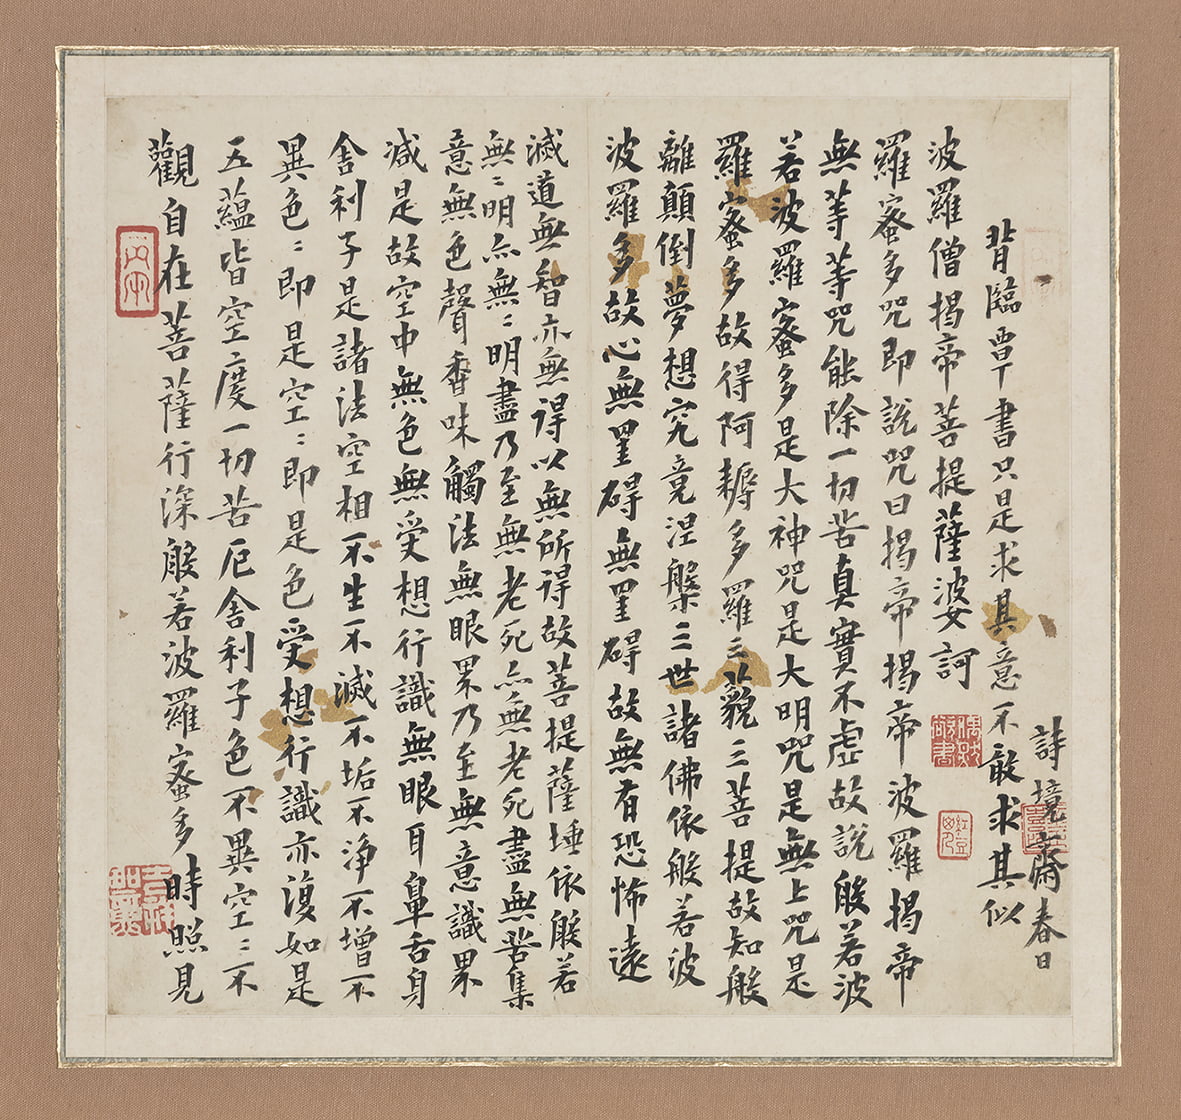 觀自在菩薩行深般若波羅蜜多時照見
五蘊皆空度一切苦厄舍利子色不異空〻不
異色〻即是空〻即是色受想行識亦復如是
舍利子是諸法空相不生不滅不垢不淨不增不
减是故空中無色無受想行識無眼耳鼻舌身
意無色聲香味觸法無眼界乃至無意識界
無〻明亦無〻明盡乃至無老死亦無老死盡無苦集
滅道無智亦無得以無所得故菩提薩埵依般若
波羅多故心無罣碍無罣碍故無有恐怖遠
離顛倒夢想究竟涅槃三世諸佛依般若波
羅蜜多故得阿耨多羅三藐三菩提故知般
若波羅蜜多是大神咒是大明咒是無上咒是
無等等咒能除一切苦真實不虛故説般若波
羅蜜多咒即説咒曰揭帝揭帝波羅揭帝
波羅僧揭帝菩提薩婆訶
背臨覃書只是求其意不敢求其似
詩境齋春日
吉祥如意